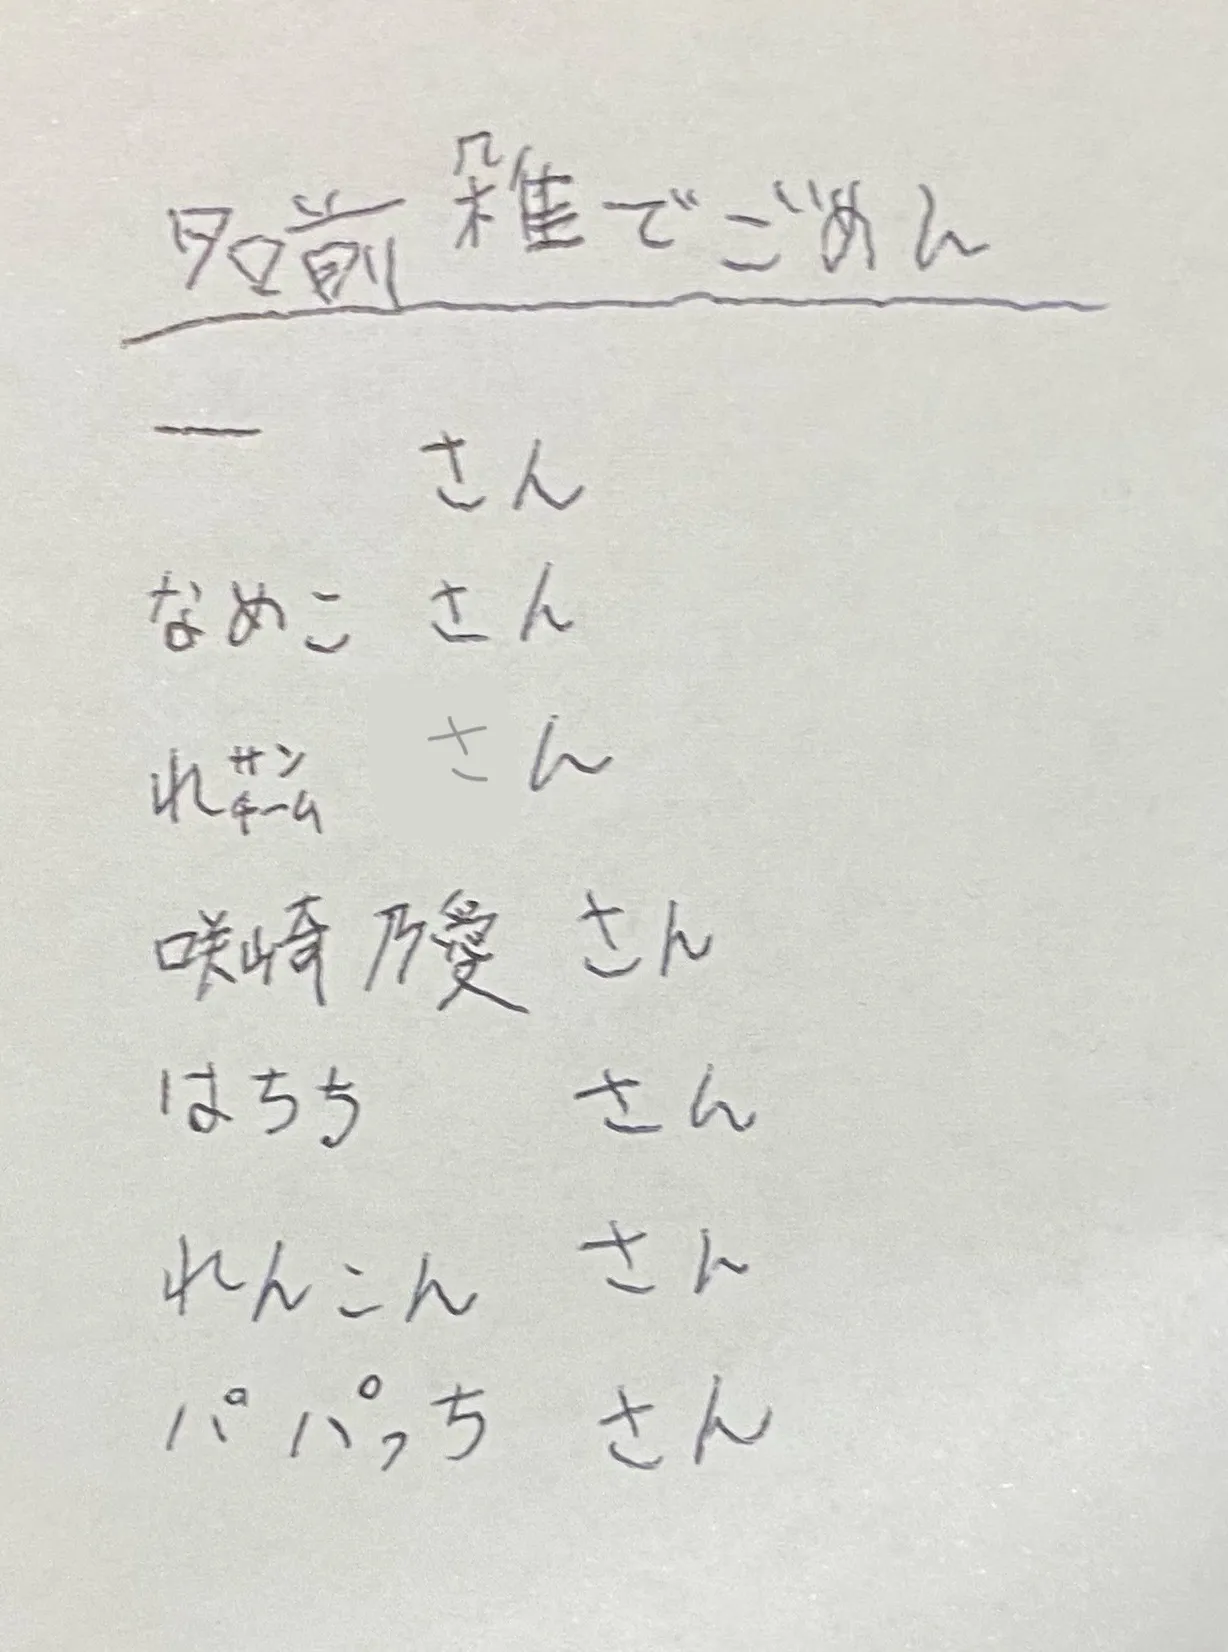 名前 雑でごめん
一 さん
なめこ さん
れサンチーム さん
咲崎 乃愛 さん
はちち さん
れんこん さん
パパっち さん